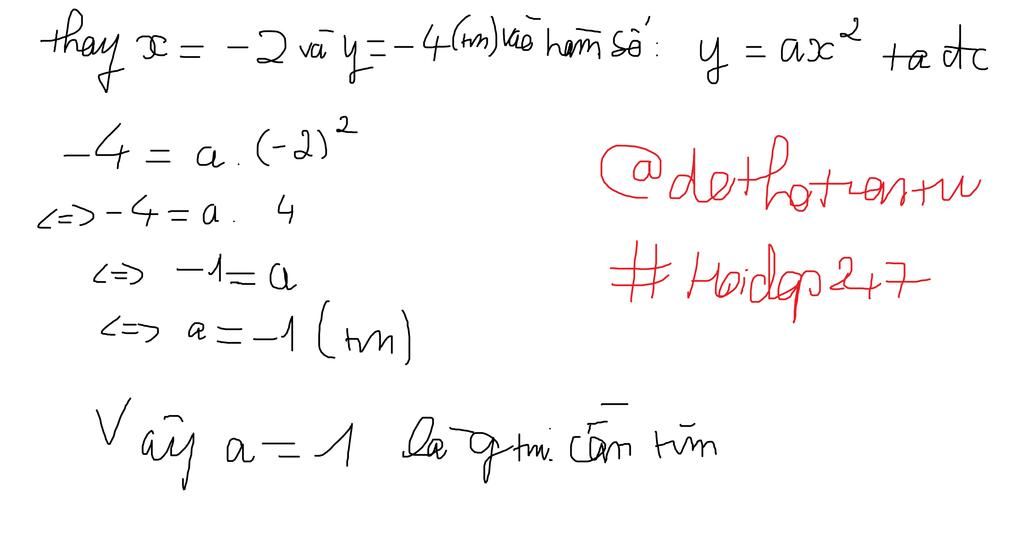 thay x = -2 và y = -4 (tm) vào hàm số: y = ax² ta đc
-4 = a . (-2)²
<=> -4 = a . 4
<=> -1 = a
<=> a = -1 (tm)
Vậy a = 1 là gtrị cần tìm
@dothotrantu
#Hoidap247